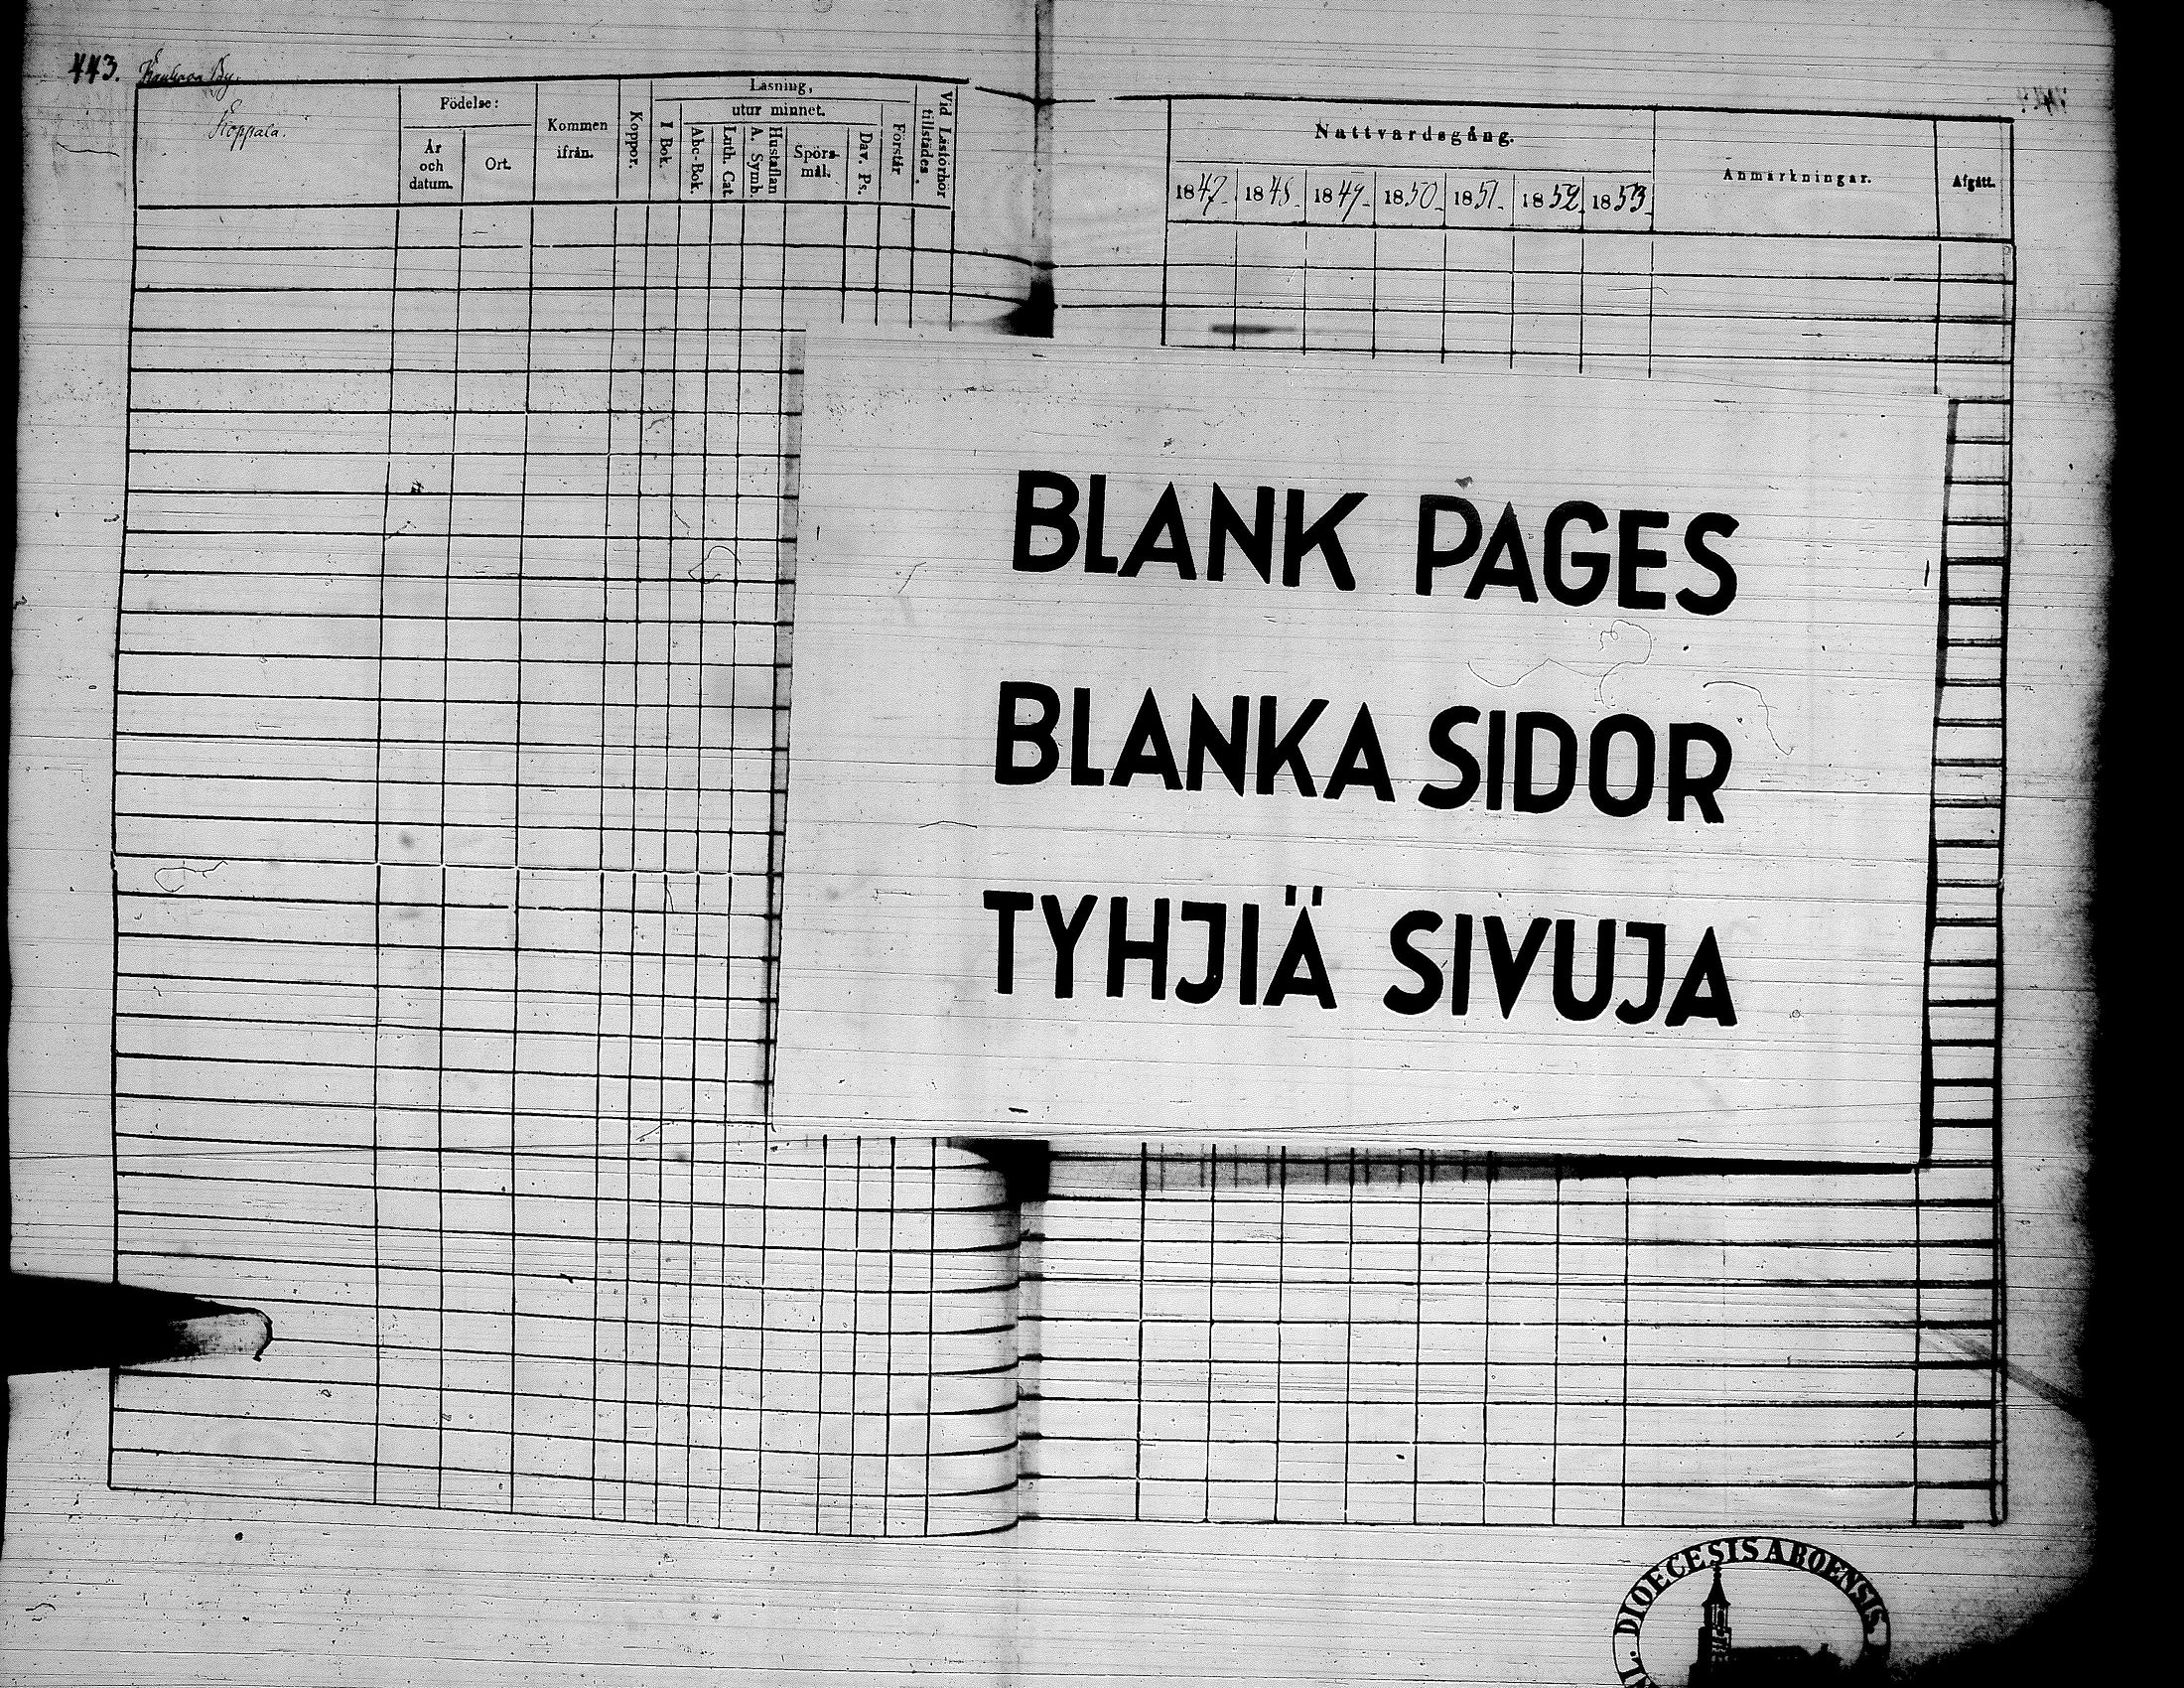 443. By.
Koppala.
Födelse:
År
och
datum.
Ort.
Kommen
ifrån.
Koppor.
Läsning,
utur minnet.
I Bok.
Abc-Bok.
Luth. Cat.
Hustaflan
A. Symb.
Spörs-
mål.
Dav. Ps.
Förstår
Vid Läsförhör
tillstädes.
Nattvardsgång.
1847. 1848. 1849. 1850. 1851. 1852. 1853.
Anmärkningar.
Afgått.
BLANK PAGES
BLANKA SIDOR
TYHJIÄ SIVUJA
DIOECESIS ABOENSIS.